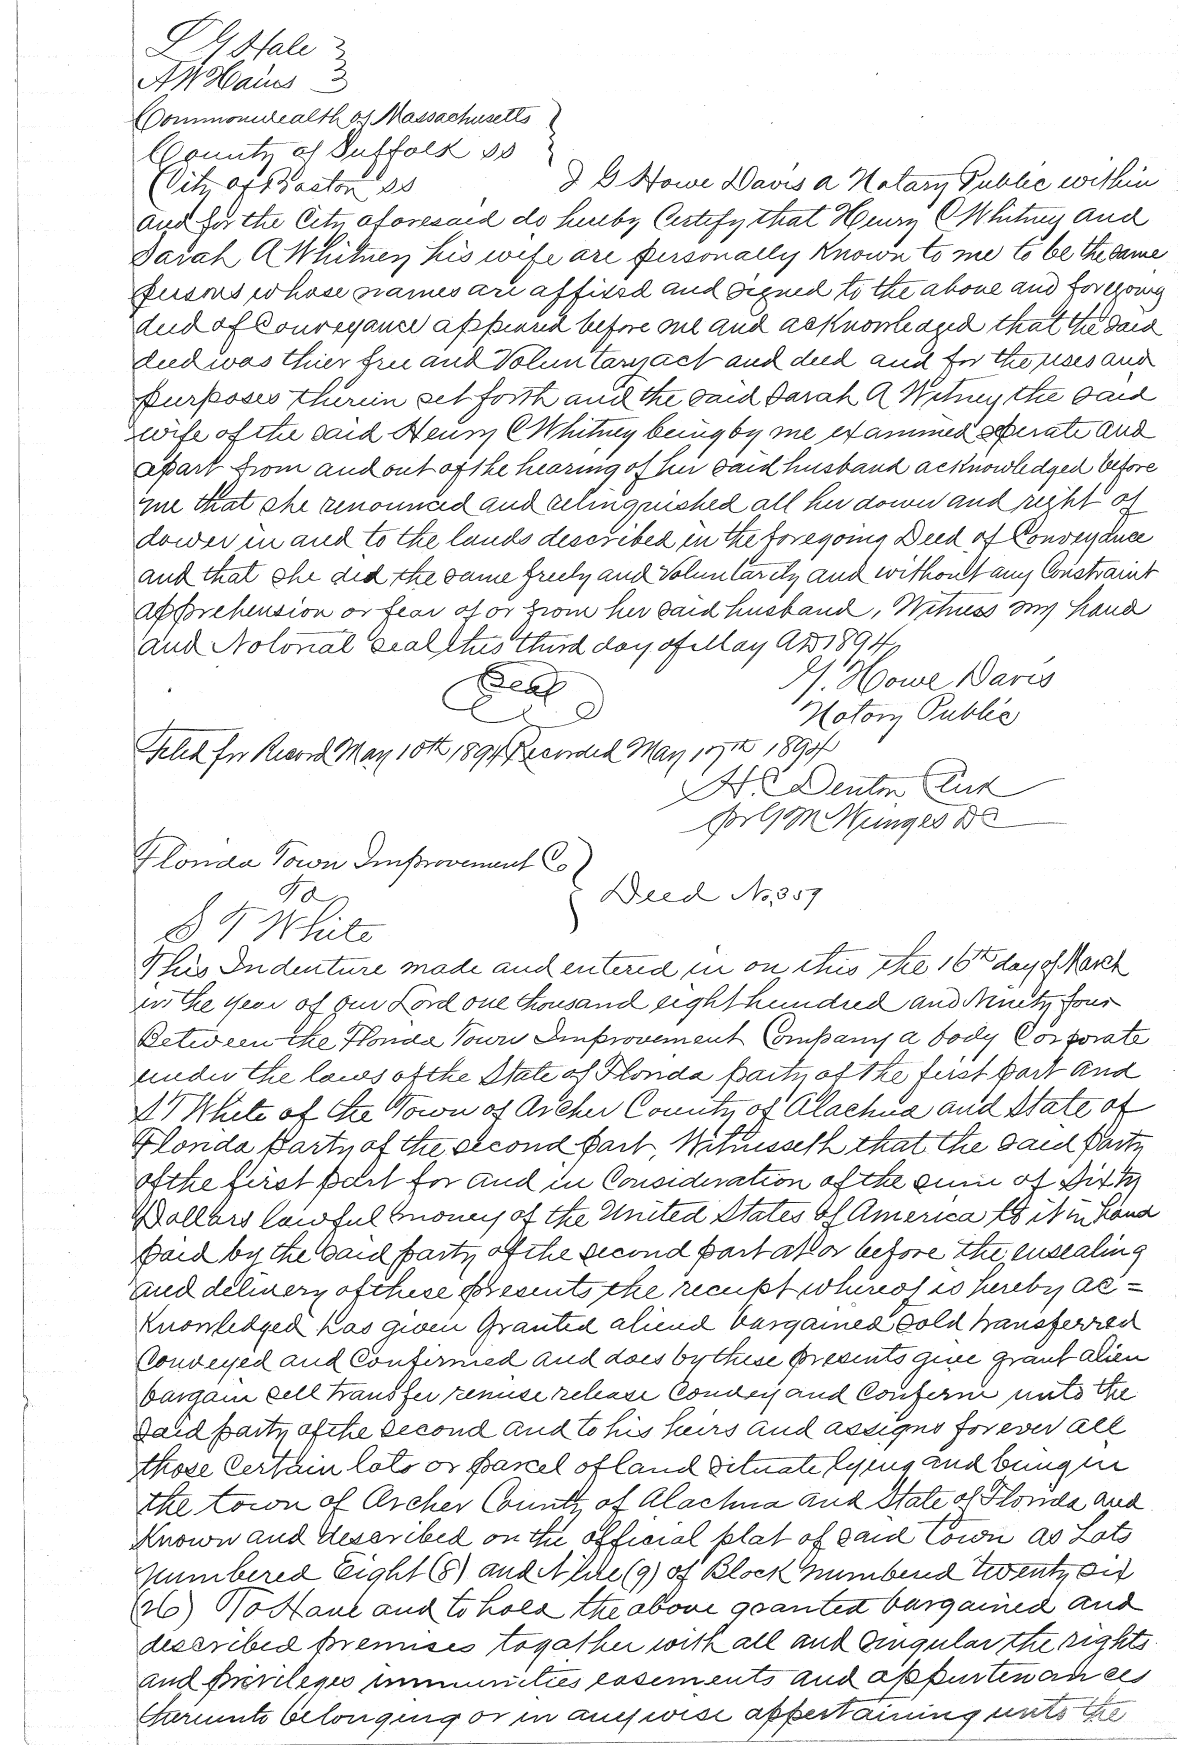 L G Hale }
A W Hains }
Commonwealth of Massachusetts }
County of Suffolk ss
City of Boston ss I G Howe Davis a Notary Public within
and for the City aforesaid do hereby Certify that Henry C Whitney and
Sarah A Whitney his wife are personally Known to me to be the same
persons whose names are affixed and signed to the above and foregoing
deed of Conveyance appeared before me and acknowledged that the said
deed was thier free and Voluntary act and deed and for the uses and
purposes therein set forth and the said Sarah A Witney the said
wife of the said Henry C Whitney being by me examined seperate and
apart from and out of the hearing of her said husband acknowledged before
me that she renounced and relinquished all her dower and right of
dower in and to the lands described in the foregoing Deed of Conveyance
and that she did the same freely and Voluntarily and without any Constraint
apprehension or fear of or from her said husband, Witness my hand
and Notorial seal this third day of May AD 1894
Seal G. Howe Davis
Notary Public
Filed for Record May 10th 1894 Recorded May 17th 1894
H. C Denton Clerk
pr G M DC
Florida Town Improvement Co }
To } Deed No. 359
S T White
This Indenture made and entered in on this the 16th day of March
in the year of our Lord one thousand eight hundred and Ninety four
Between the Florida Town Improvement Company a body Corporate
under the laws of the State of Florida party of the first part and
S T White of the Town of Archer County of Alachua and State of
Florida party of the second part, Witnesseth that the said party
of the first part for and in Consideration of the sum of Sixty
Dollars lawful money of the United States of America to it in hand
paid by the said party of the second part at or before the ensealing
and delivery of these presents the receipt whereof is hereby ac=
Knowledged has given Granted aliend bargained sold transferred
Conveyed and Confirmed and does by these presents give grant alien
bargain sell transfer remise release Convey and Confirm unto the
said party of the second and to his heirs and assigns forever all
those Certain lots or parcel of land situate lying and being in
the town of Archer County of Alachua and State of Florida and
Known and described on the official plat of said Town as Lots
numbered Eight (8) and Nine (9) of Block numbered twenty six
(26) To Have and to hold the above granted bargained and
described premises togather with all and singular the rights
and privileges immunities easements and appurtenances
thereunto belonging or in anywise appertaining unto the